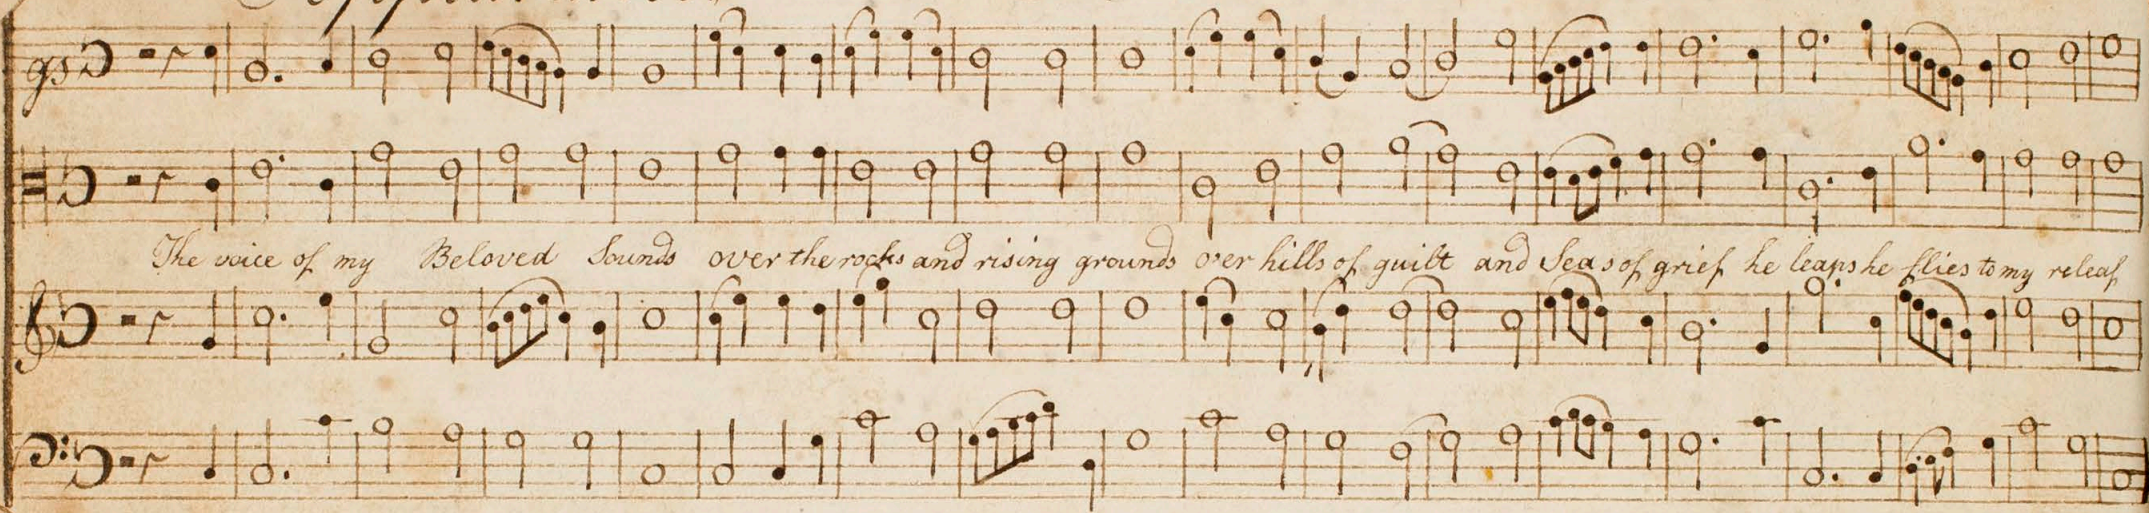 The voice of my Beloved Sounds over the rocks and rising grounds over hills of guilt and Seas of grief he leaps he flies to my releaf